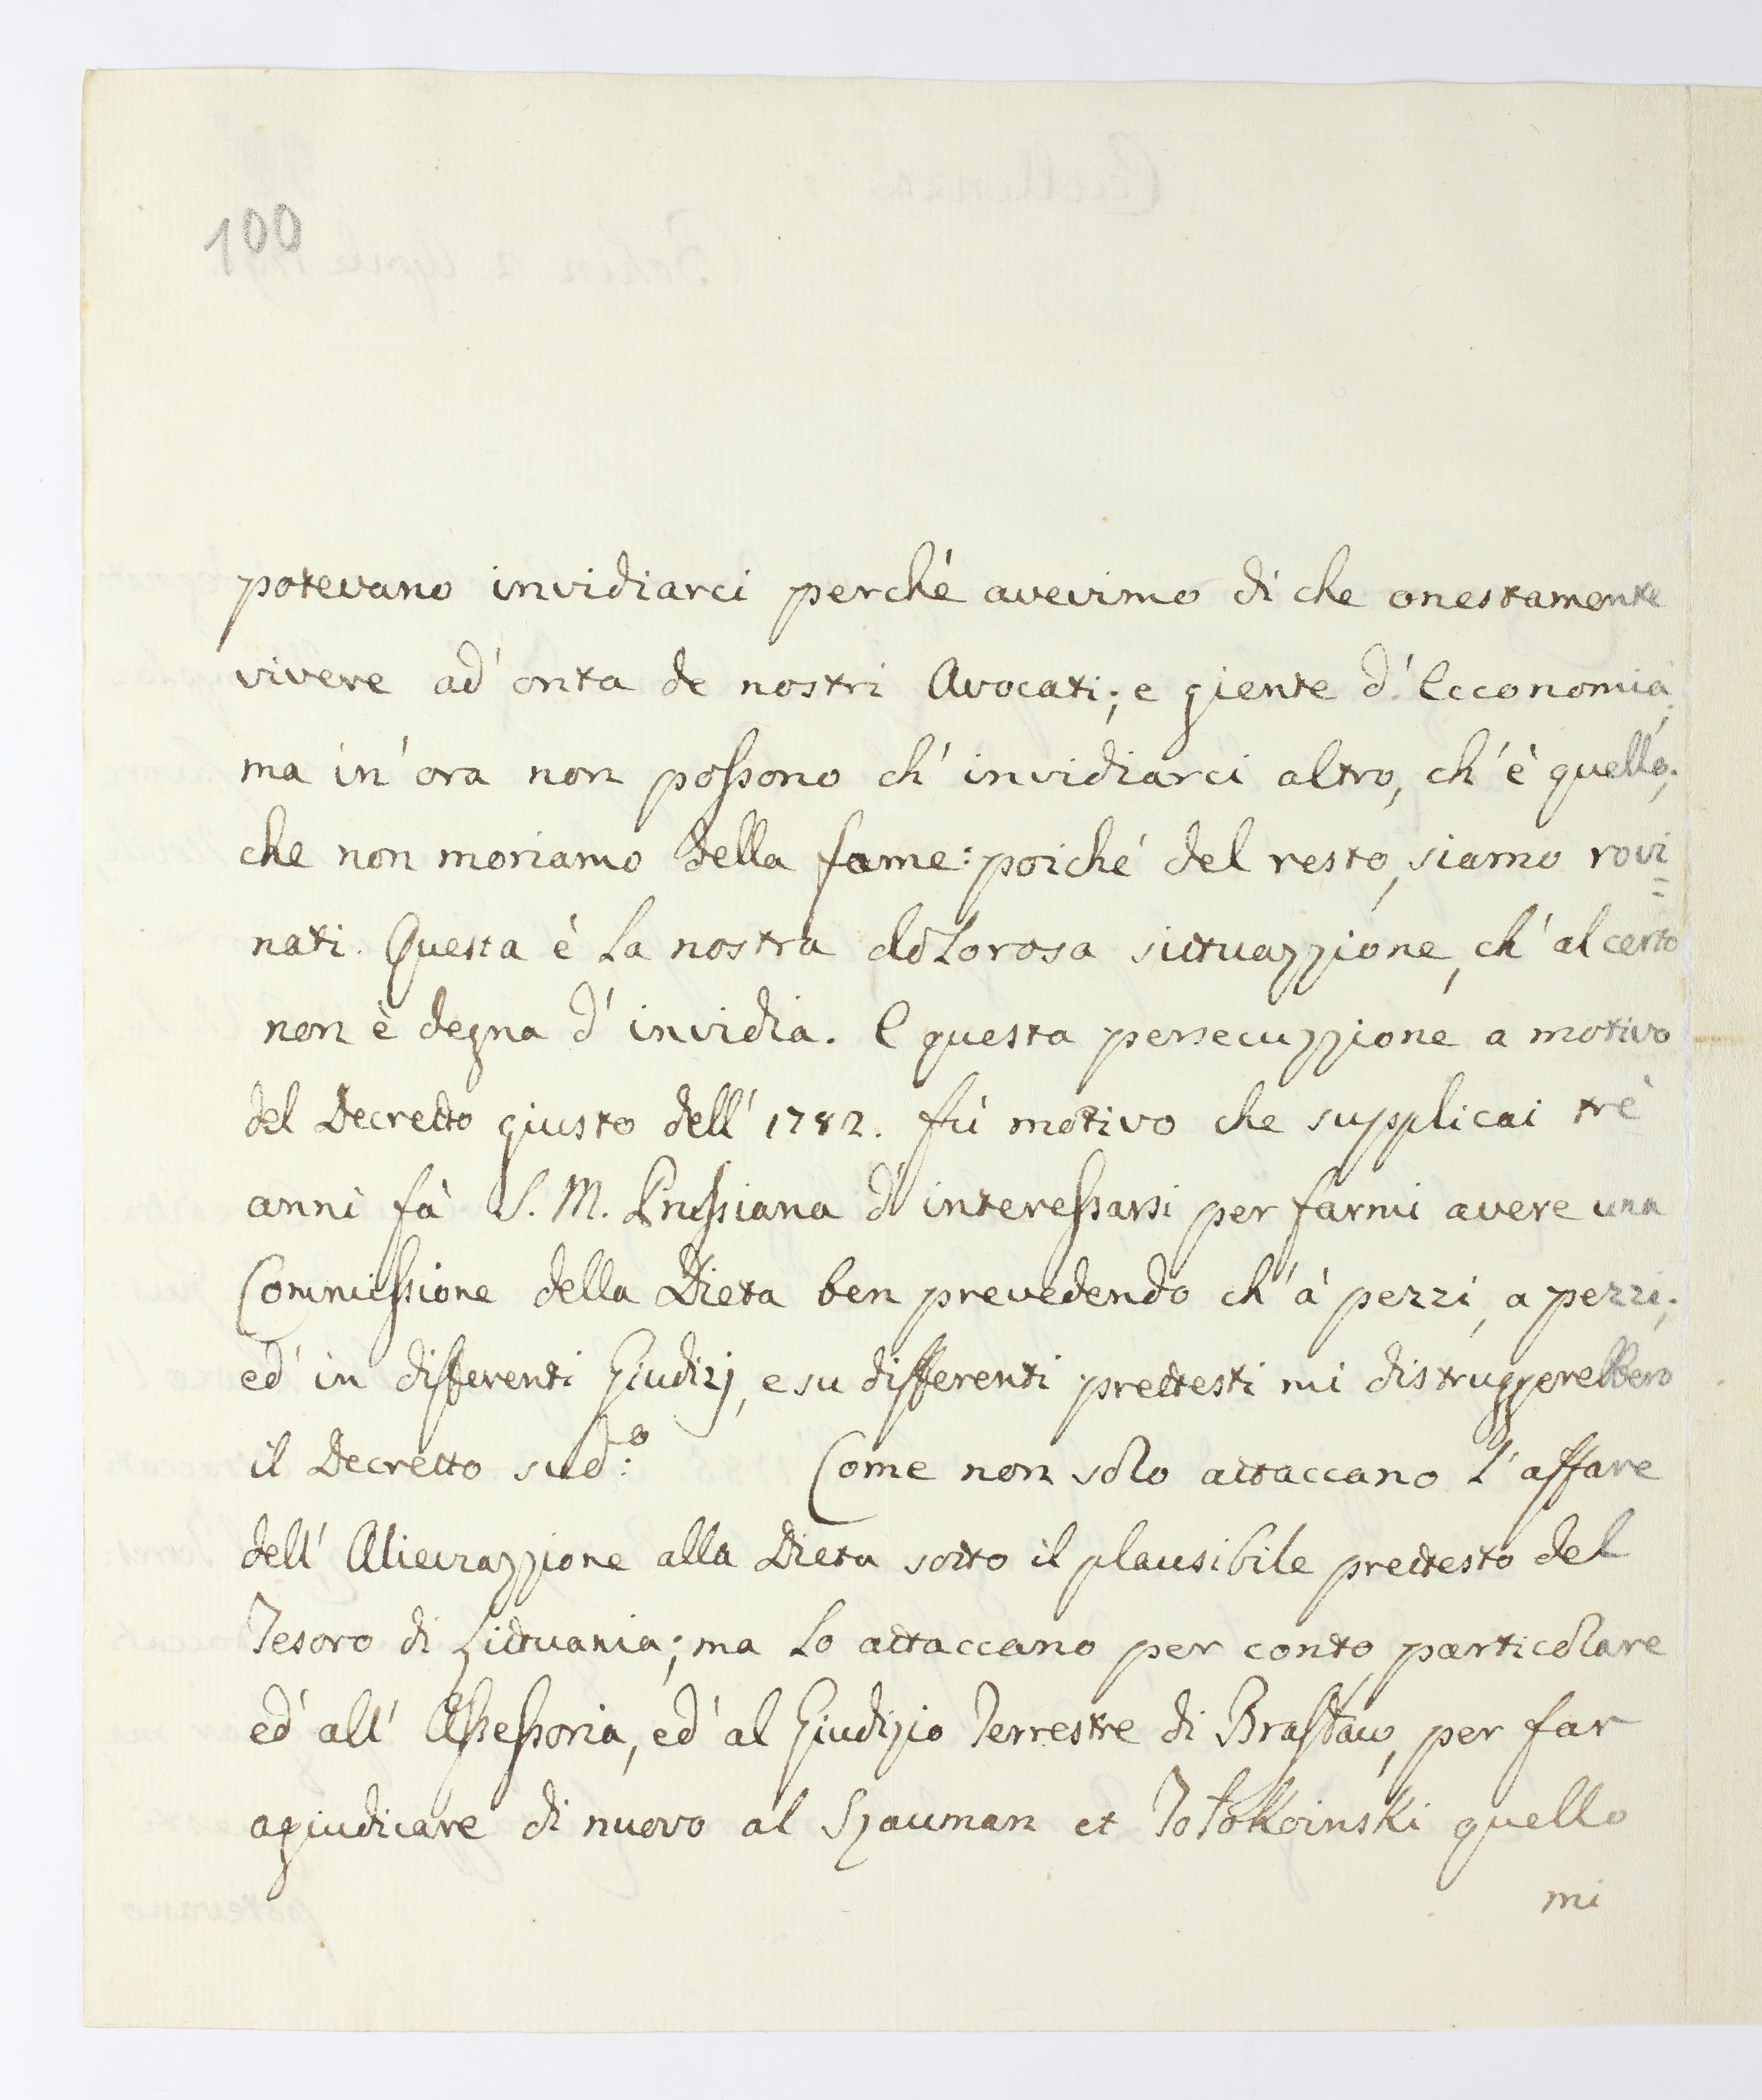 100
potevano invidiarci perché avevimo di che onestamente
vivere ad' onta de nostri Avocati; e giente d' Ecconomia;
ma in' ora non possono ch' invidiarci altro, ch' è quello;
che non moriamo della fame: poiché del resto, siamo rovi=
nati. Questa è la nostra dolorosa sittuazzione, ch' al certo
non è degna d' invidia. E questa persecuzzione a motivo
del Decretto giusto dell' 1782. fù motivo che supplicai trè
anni fà S. M. Prussiana d' interessarsi per farmi avere una
Commissione della Dieta ben prevedendo ch' à pezzi, a pezzi;
ed' in differenti Giudizj, e su differenti prettesti mi distruggerebbero
il Decretto sud:º Come non solo attaccano l' affare
dell' alla Dieta sotto il plausibile prettesto del
Tesoro di Littuania; ma lo attaccano per conto particolare
ed' all' Assessoria, ed' al Giudizio Terrestre di Brasław, per far
agiudicare di nuovo al Szauman et quello
mi